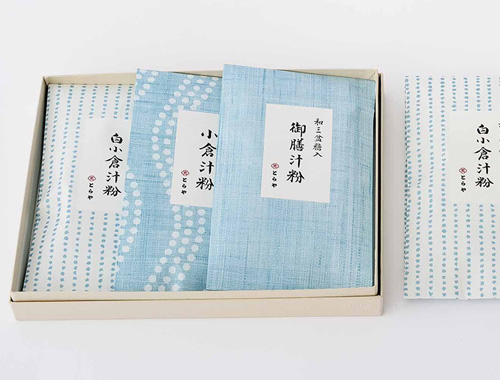 白小倉汁粉
とらや
小倉汁粉
とらや
和三盆糖入
御膳汁粉
とらや
白小倉汁粉
とらや